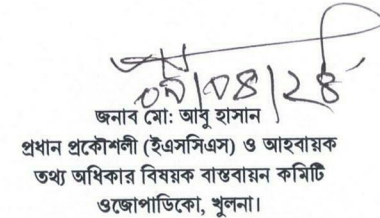 ০৯/০৪/২৪
জনাব মো: আবু হাসান
প্রধান প্রকৌশলী (ইএসসিএস) ও আহবায়ক
তথ্য অধিকার বিষয়ক বাস্তবায়ন কমিটি
ওজোপাডিকো, খুলনা।